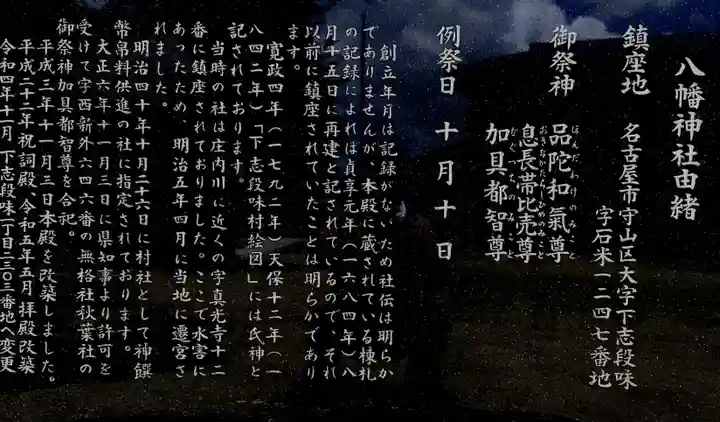 八幡神社由緒
鎮座地　名古屋市守山区大字下志段味
字石米一二四七番地
御祭神　品陀和氣尊
ほんだわけのみこと
息長帯比売尊
おきながたらしひめのみこと
加具都智尊
かぐつちのみこと
例祭日　十月十日
創立年月は記録がないため社伝は明らか
でありませんが、本殿に蔵されている棟札
の記録によれば貞享元年（一六八四年）八
月十五日に再建と記されているので、それ
以前に鎮座されていたことは明らかであり
ます。
寛政四年（一七九二年）天保十二年（一
八四二年）「下志段味村絵図」には氏神と
記されております。
当時の社は庄内川に近くの字真光寺十二
番に鎮座されておりました。ここで水害に
あったため、明治五年四月に当地に遷宮さ
れました。
明治四十年十月二十六日に村社として神饌
幣帛料供進の社に指定されております。
大正六年十一月三日に県知事より許可を
受けて字西新外六四六番の無格社秋葉社の
御祭神加具都智尊を合祀。
平成三年十一月三日本殿を改築しました。
平成二十二年祝詞殿、令和五年五月拝殿改築
令和四年十一月 下志段味一丁目二二〇三番地へ変更